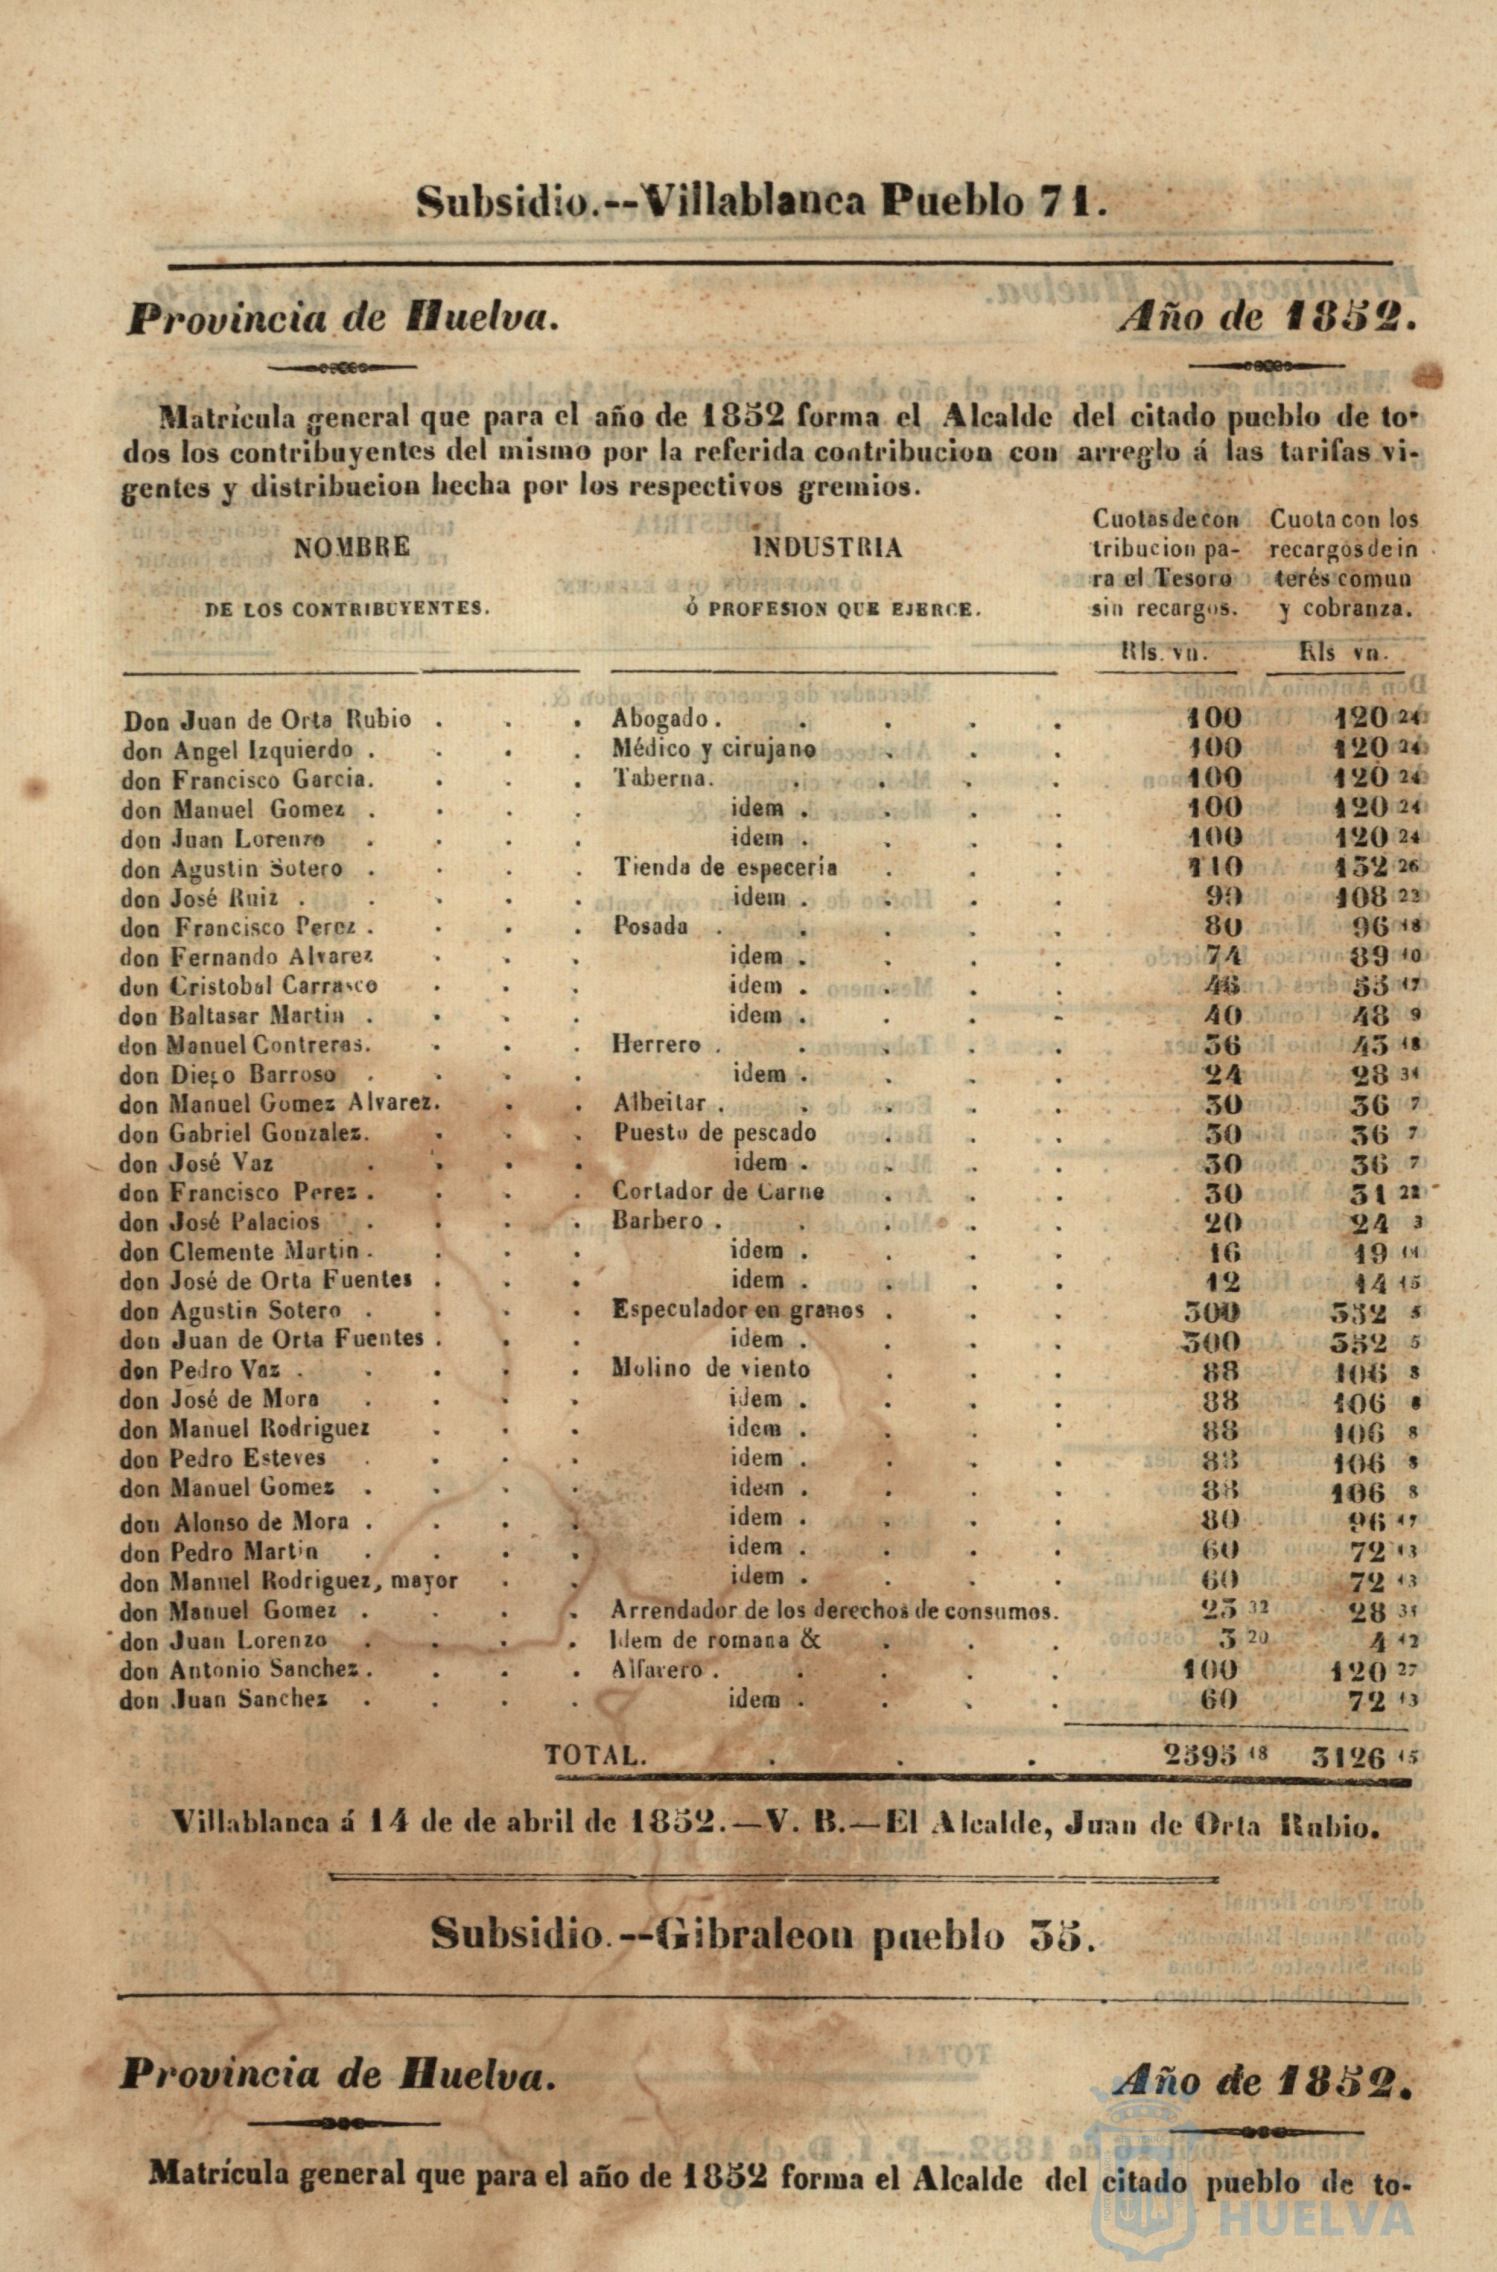 Subsidio.--Villablanca Pueblo 71.
Provincia de Huelva. Año de 1852.
Matrícula general que para el año de 1852 forma el Alcalde del citado pueblo de to-
dos los contribuyentes del mismo por la referida contribucion con arreglo á las tarifas vi-
gentes y distribucion hecha por los respectivos gremios.
NOMBRE
DE LOS CONTRIBUYENTES.
INDUSTRIA
Ó PROFESION QUE EJERCE.
Cuotas de con
tribucion pa-
ra el Tesoro
sin recargos.
Rls. vn.
Cuota con los
recargos de in
terés comun
y cobranza.
Rls vn.
Don Juan de Orta Rubio . . . Abogado . . . . . 100 120 24
don Angel Izquierdo . . . . Médico y cirujano . . . 100 120 24
don Francisco Garcia. . . . Taberna. . . . . 100 120 24
don Manuel Gomez . . . . idem . . . . 100 120 24
don Juan Lorenzo . . . . idem . . . . 100 120 24
don Agustin Sotero . . . . Tienda de especería . . . 110 132 26
don José Ruiz . . . . . idem . . . . 90 108 22
don Francisco Perez . . . . Posada . . . . . 80 96 18
don Fernando Alvarez . . . idem . . . . 74 89 10
don Cristobal Carrasco . . . idem . . . . 46 55 17
don Baltasar Martin . . . . idem . . . . 40 48 9
don Manuel Contreras. . . . Herrero . . . . . 36 43 18
don Diego Barroso . . . . idem . . . . 24 28 31
don Manuel Gomez Alvarez. . . Albeitar . . . . . 30 36 7
don Gabriel Gonzalez. . . . Puesto de pescado . . . 30 36 7
don José Vaz . . . . idem . . . . 30 36 7
don Francisco Perez . . . . Cortador de Carne . . . 30 31 22
don José Palacios . . . . Barbero . . . . . 20 24 3
don Clemente Martin . . . . idem . . . . 16 19 11
don José de Orta Fuentes . . . idem . . . . 12 14 15
don Agustin Sotero . . . . Especulador en granos . . . 300 332 5
don Juan de Orta Fuentes . . . idem . . . . 300 332 5
don Pedro Vaz . . . . . Molino de viento . . . 88 106 8
don José de Mora . . . . idem . . . . 88 106 8
don Manuel Rodriguez . . . idem . . . . 88 106 8
don Pedro Esteves . . . . idem . . . . 88 106 8
don Manuel Gomez . . . . idem . . . . 88 106 8
don Alonso de Mora . . . . idem . . . . 80 96 17
don Pedro Martin . . . . idem . . . . 60 72 13
don Manuel Rodriguez, mayor . . idem . . . . 60 72 13
don Manuel Gomez . . . . Arrendador de los derechos de consumos. 23 32 28 31
don Juan Lorenzo . . . . Idem de romana & . . . 3 20 4 12
don Antonio Sanchez . . . . Alfarero . . . . . 100 120 27
don Juan Sanchez . . . . idem . . . . 60 72 13
TOTAL. . . . 2595 18 3126 15
Villablanca á 14 de de abril de 1852.—V. B.—El Alcalde, Juan de Orta Rubio.
Subsidio.--Gibraleon pueblo 35.
Provincia de Huelva. Año de 1852.
Matrícula general que para el año de 1852 forma el Alcalde del citado pueblo de to-
HUELVA